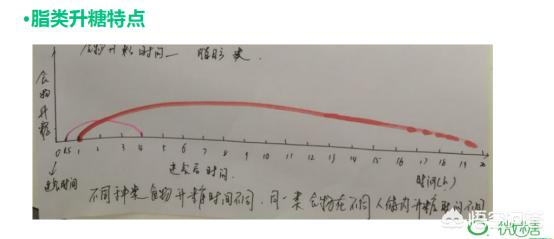 •脂类升糖特点
食物升糖时间— 脂肪类.
食物升糖
0 0.5 1 2 3 4 5 6 7 8 9 10 11 12 13 14 15 16 17 18 19 20
进食时间
进食后时间.
时间(h)
不同种类食物升糖时间不同.同一类食物在不同人体内升糖时间不同
悟空问答
微糖